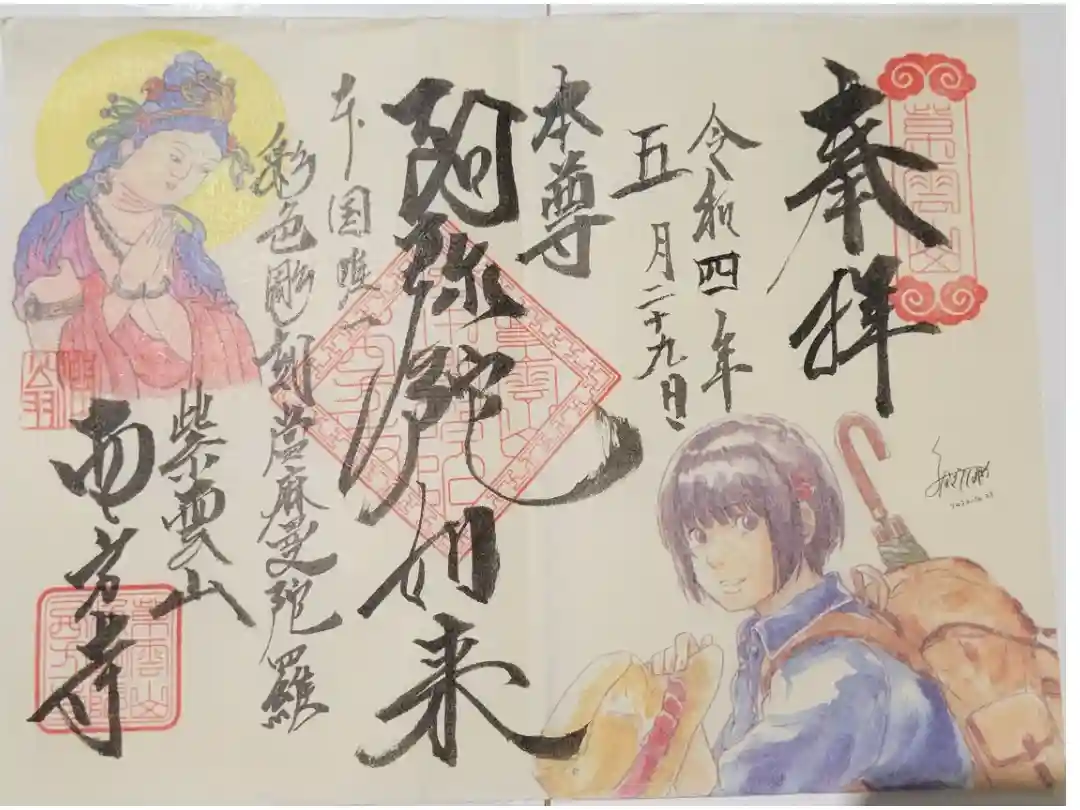 奉拝
紫雲山
令和四年
五月二十九日
本尊
阿弥陀如来
本国唯一
彩色彫刻當麻曼陀羅
紫雲山
西方寺